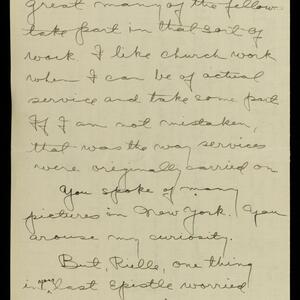 great many of the fellows
take part in that sort of
work. I like church work
when I can be of actual
service and take some part
If I am not mistaken,
that was the way services
were originally carried on
You spoke of many
pictures in New York. You
arouse my curiosity.
But, Rielle, one thing
in your last Epistle worried